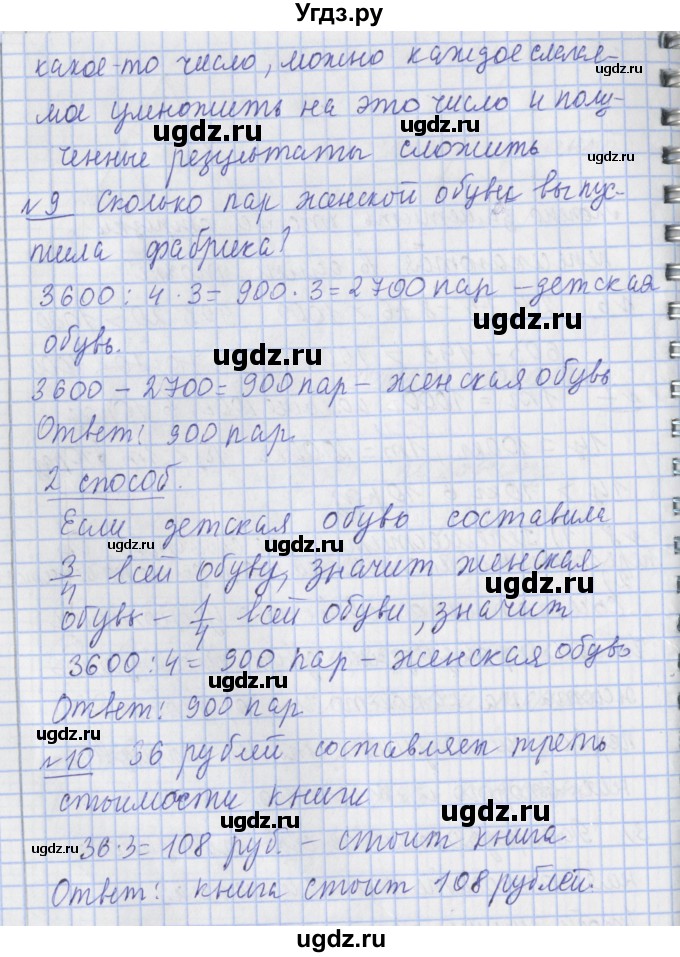 Угдз.ру
какое-то число, можно каждое слагае-
мое умножить на это число и полу-
ugdz.ru ugdz.ru
ugdz.ru
ченные результаты сложить
№9 Сколько пар женской обуви выпус-
тила фабрика?
3600 : 4 · 3 = 900 · 3 = 2700 пар – детская
ugdz.ru
обувь.
ugdz.ru
3600 – 2700 = 900 пар – женская обувь
Ответ: 900 пар.
2 способ.
Если детская обувь составила
ugdz.ru ugdz.ru
3/4 всей обуви, значит женская
обувь – 1/4 всей обуви, значит
3600 : 4 = 900 пар – женская обувь
ugdz.ru
Ответ: 900 пар
ugdz.ru
№10 36 рублей составляет треть
стоимости книги
ugdz.ru ugdz.ru
36 · 3 = 108 руб. – стоит книга
ugdz.ru
Ответ: книга стоит 108 рублей.
ugdz.ru